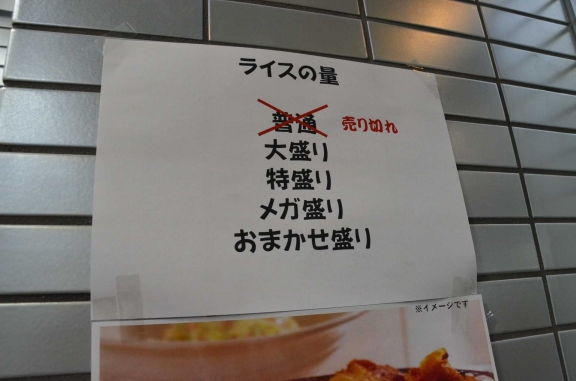 ライスの量
普通 売り切れ
大盛り
特盛り
メガ盛り
おまかせ盛り
※イメージです